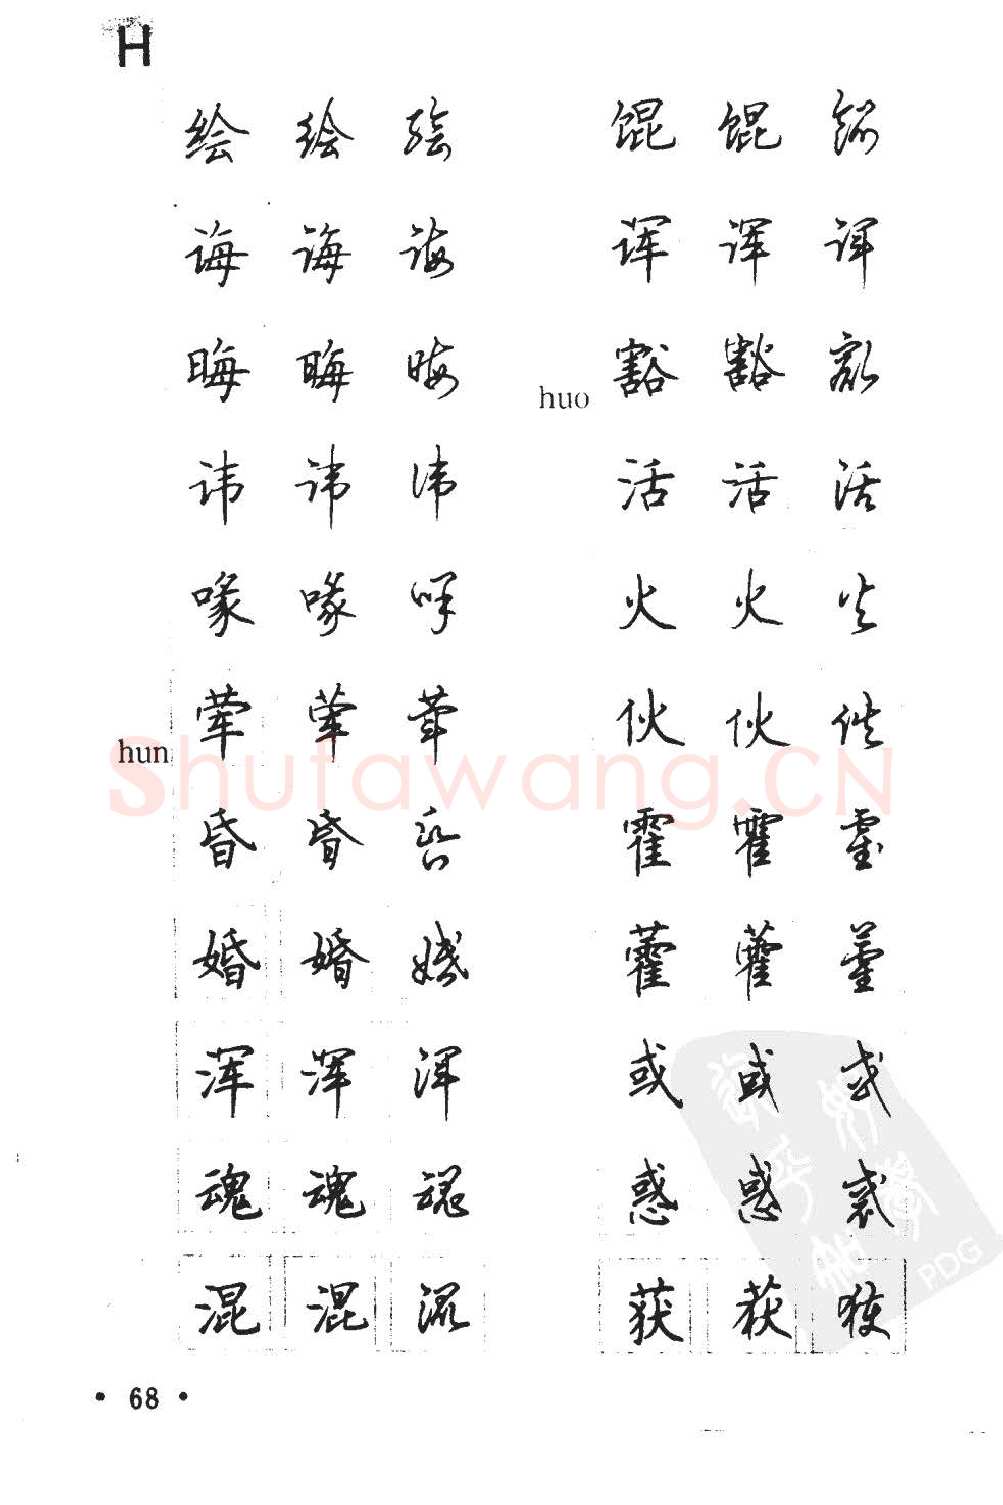 H
绘 绘 绘
诲 诲 诲
晦 晦 晦
讳 讳 讳
喙 喙 喙
hun 荤 荤 荤
昏 昏 昏
婚 婚 婚
浑 浑 浑
魂 魂 魂
混 混 混
馄 馄 馄
诨 诨 诨
huo 豁 豁 豁
活 活 活
火 火 火
伙 伙 伙
霍 霍 霍
藿 藿 藿
或 或 或
惑 惑 惑
获 获 獲
· 68 ·
Shufawang.CN
PDG